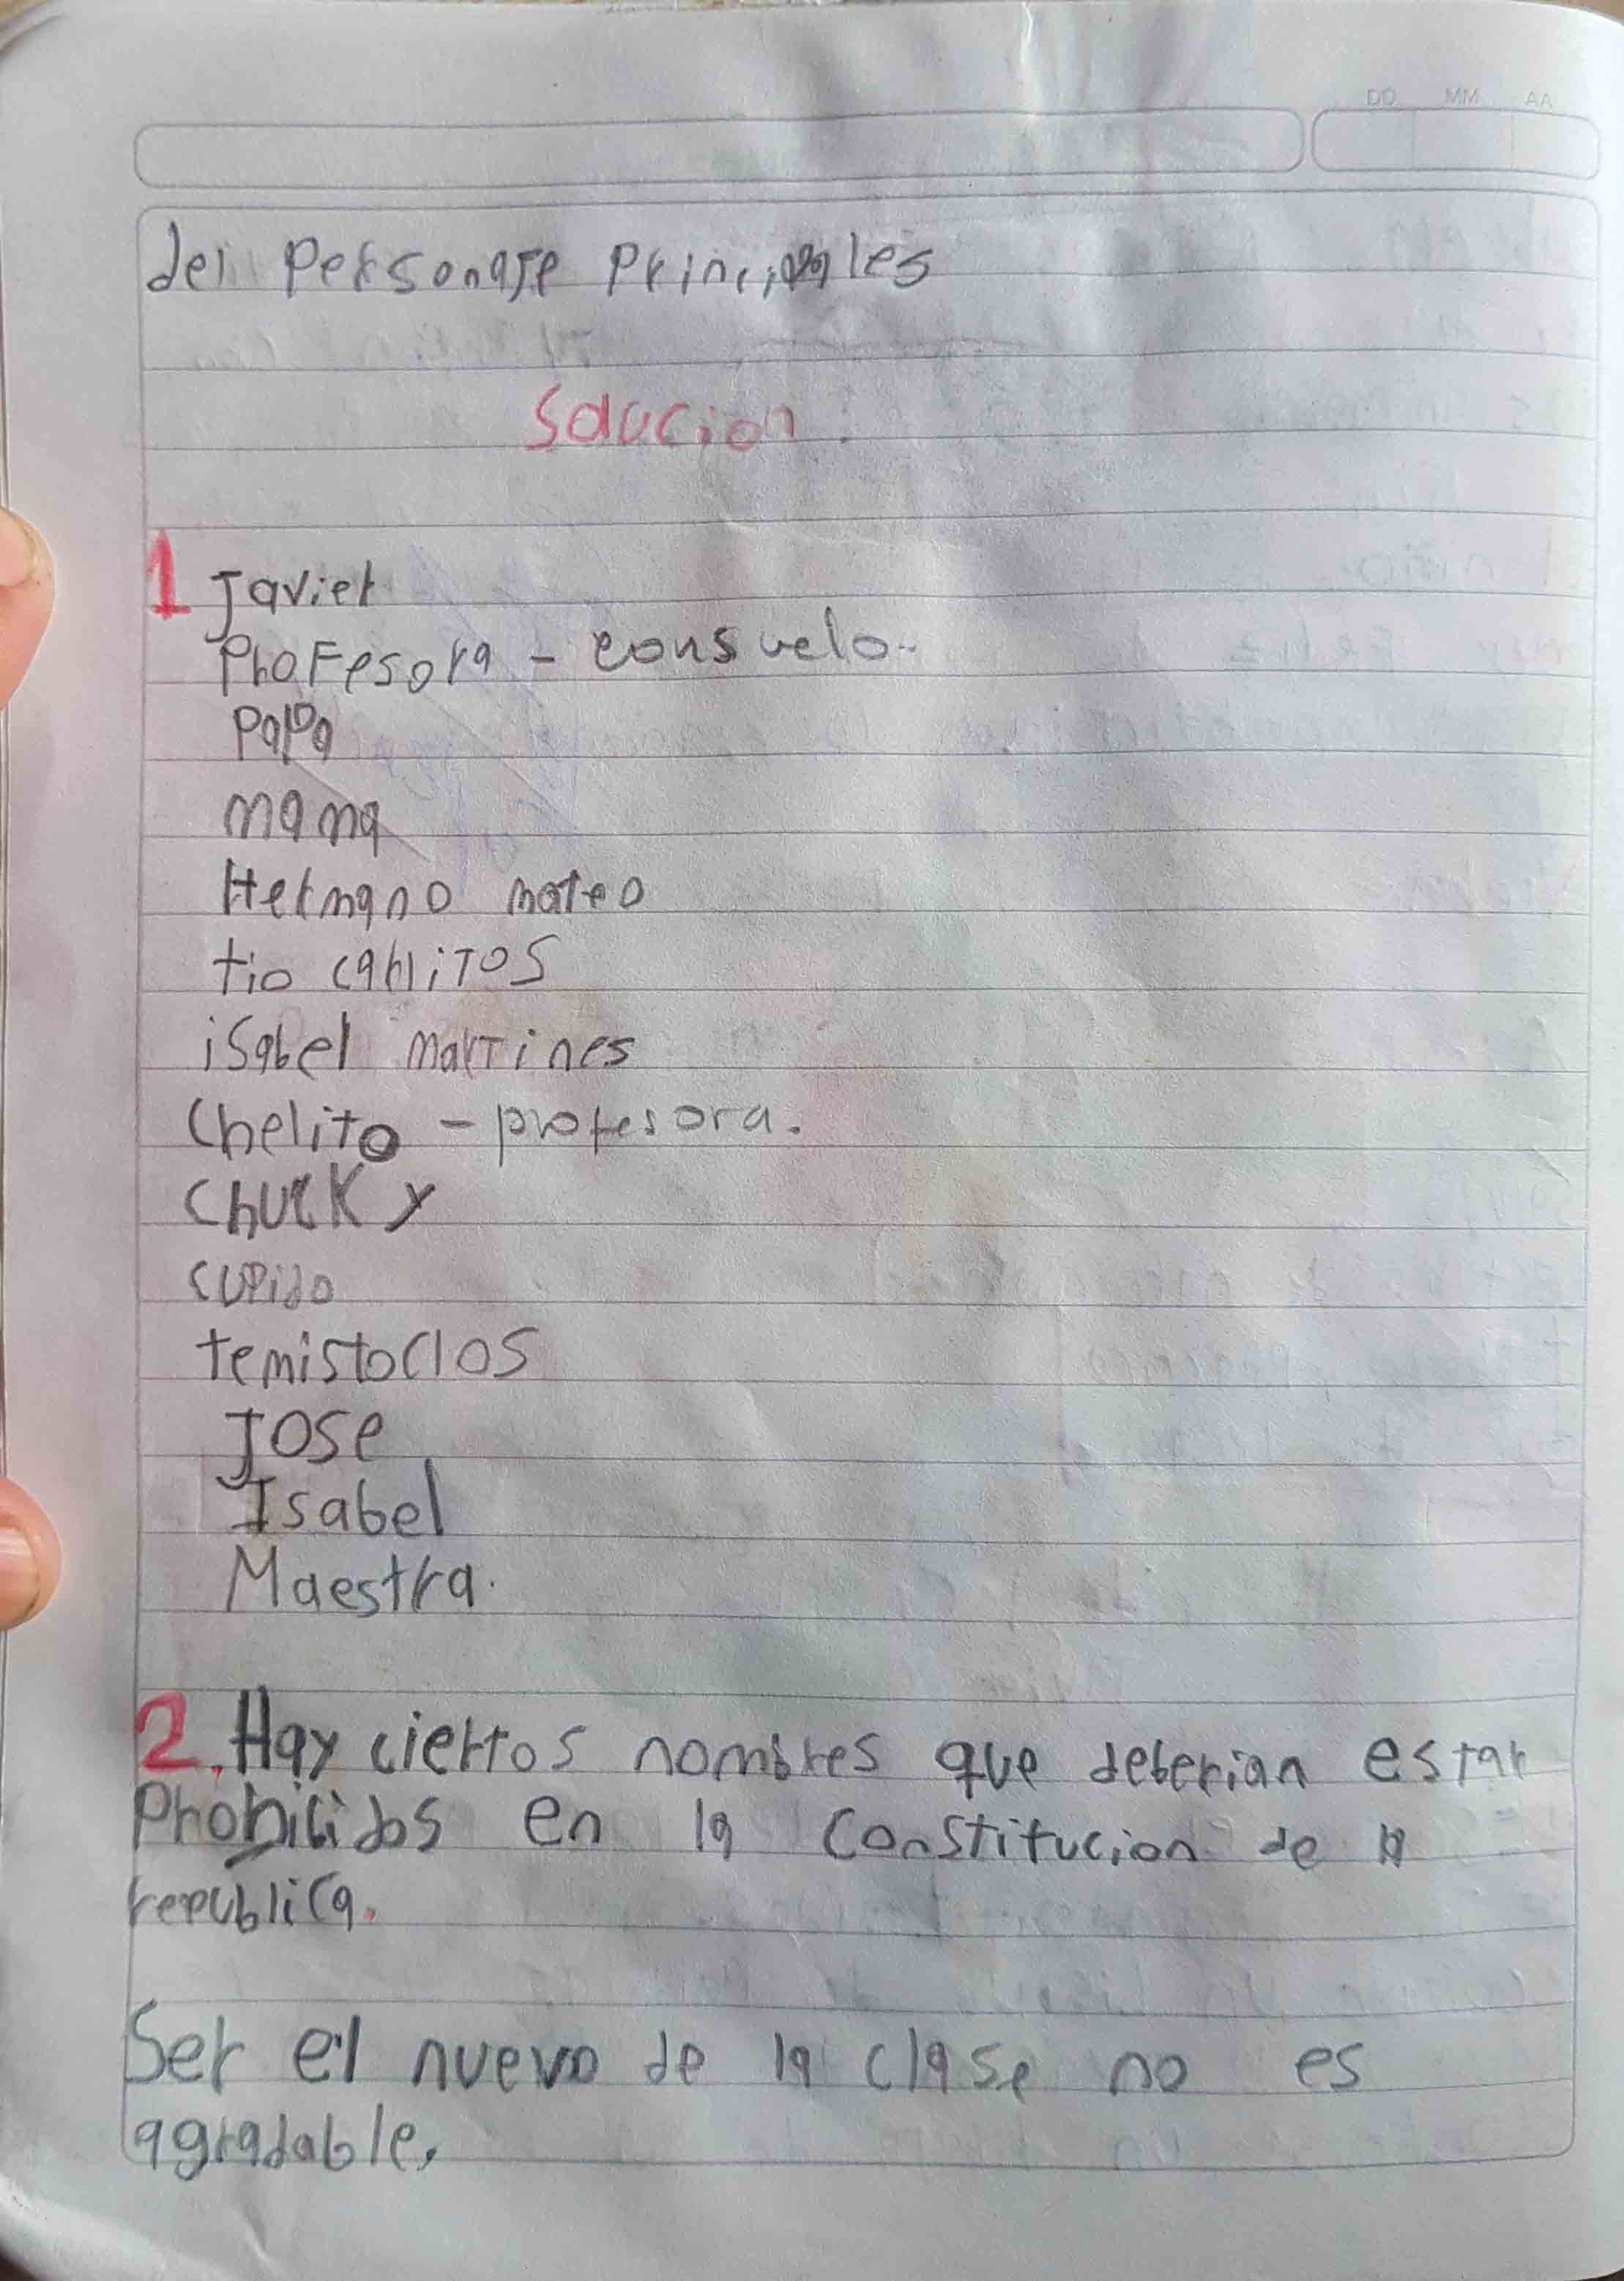 DD MM AA
del Personaje Principales
Solucion.
1 Javier
Profesora - consuelo.
Papa
mama
Hermano mateo
tio carlitos
isabel martines
Chelito - profesora.
Chucky
cupido
temistoclos
Jose
Isabel
Maestra.
2. Hay ciertos nombres que deberian estar
Prohibidos en la Constitucion de la
republica.
Ser el nuevo de la clase no es
agradable.